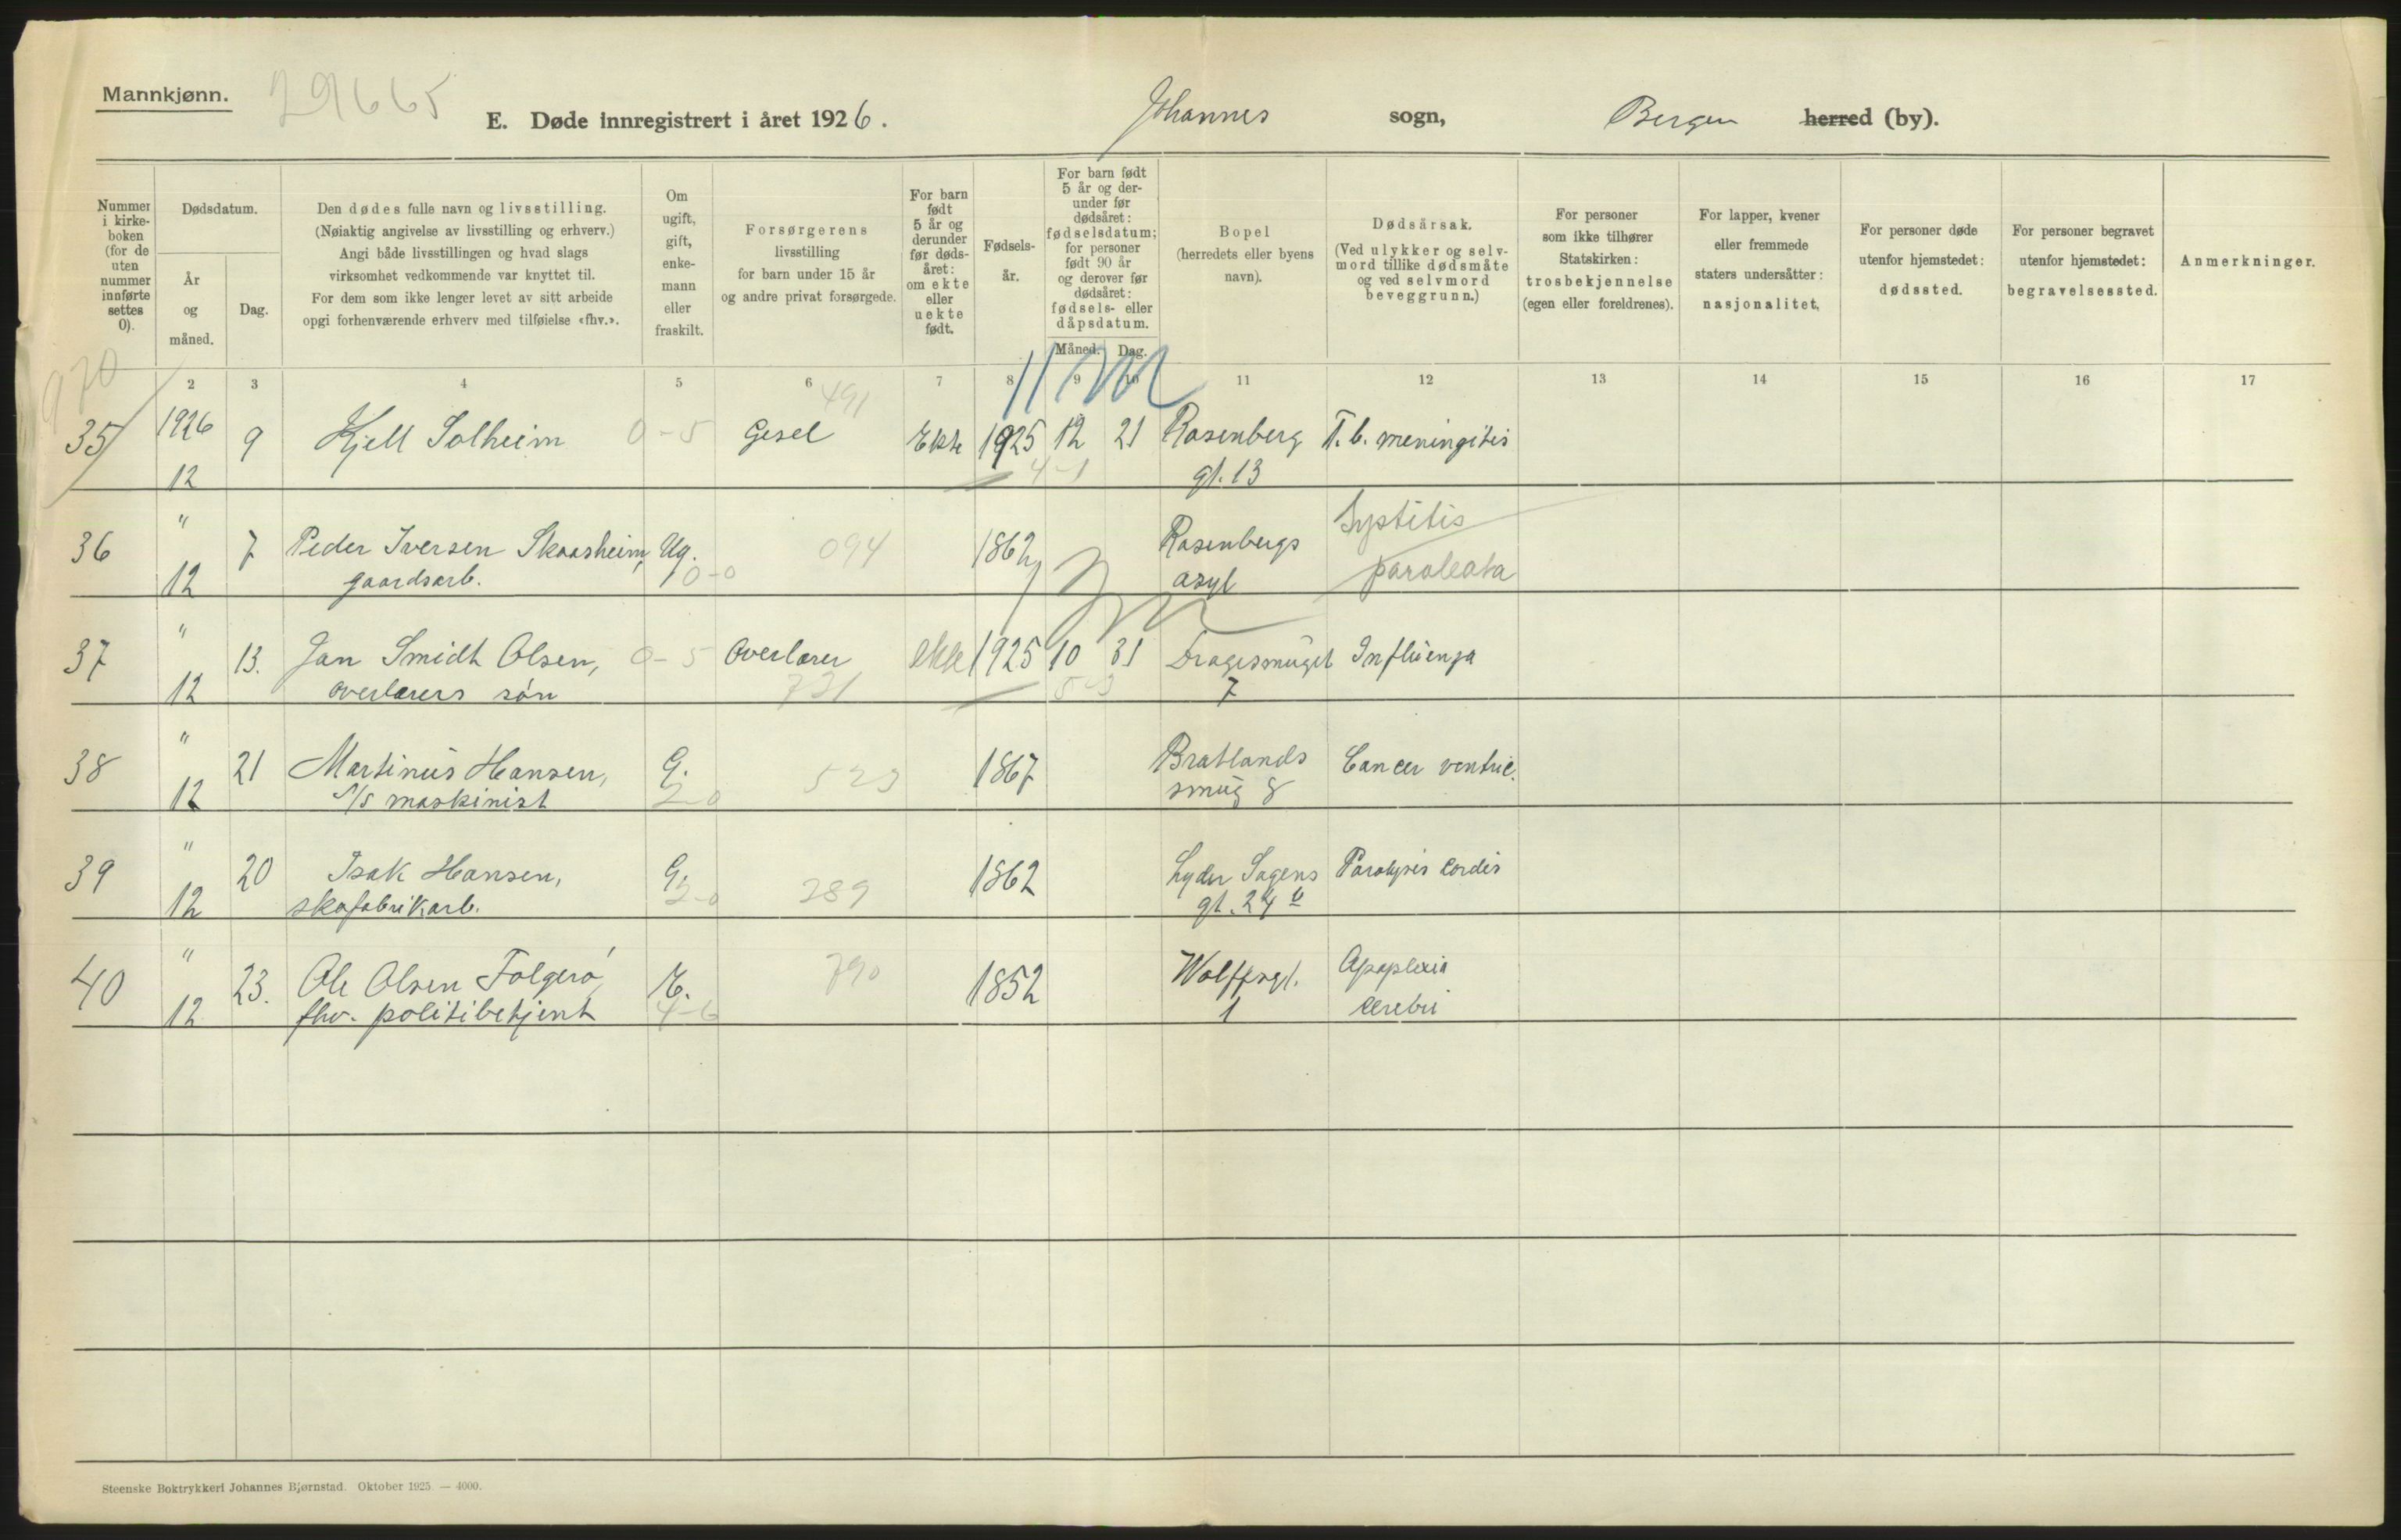 Mannkjønn.
29665
E. Døde innregistrert i året 1926.
Johannes sogn,
Bergen herred (by).
Nummer i kirke-boken (for de uten nummer innførte settes 0).
Dødsdatum.
År og måned.
Dag.
Den dødes fulle navn og livsstilling.
(Nøiaktig angivelse av livsstilling og erhverv.)
Angi både livsstillingen og hvad slags
virksomhet vedkommende var knyttet til.
For dem som ikke lenger levet av sitt arbeide
opgi forhenværende erhverv med tilføielse «fhv.».
Om ugift, gift, enke-mann eller fraskilt.
Forsørgerens
livsstilling
for barn under 15 år
og andre privat forsørgede.
For barn født 5 år og derunder før døds-året: om ekte eller uekte født.
Fødsels-år.
For barn født 5 år og der-under før dødsåret: fødselsdatum; for personer født 90 år og derover før dødsåret: fødsels- eller dåpsdatum.
Måned. Dag.
Bopel
(herredets eller byens
navn).
Dødsårsak.
(Ved ulykker og selv-
mord tillike dødsmåte
og ved selvmord
beveggrunn.)
For personer
som ikke tilhører
Statskirken:
trosbekjennelse
(egen eller foreldrenes).
For lapper, kvener
eller fremmede
staters undersåtter:
nasjonalitet.
For personer døde
utenfor hjemstedet:
dødssted.
For personer begravet
utenfor hjemstedet:
begravelsessted.
Anmerkninger.
970
2 3 4 5 6 7 8 9 10 11 12 13 14 15 16 17
491
35 1926 9 Kjell Solheim 0-5 Gesel Ekte 1925 12 21 Rosenberg T.b. meningitis
12 4-1 gt. 13
36 " 7 Peder Iversen Skaasheim, Ug. 094 1862 Rosenbergs
12 gaardsarb. 0-0 asyl
37 " 13. Jan Smidt Olsen, 0-5 Overlærer ekte 1925 10 31 Dragesmuget Influenza
12 overlærers søn 721 7
38 " 21 Martinus Hansen, G. 523 1867 Bratlands Cancer ventric.
12 s/s maskinist 2-0 smug 8
39 " 20 Isak Hansen, G. 1862 Lyder Sagens Paralysis cordis
12 skofabrikarb. 2-0 289 gt. 24 b
40 " 23. Ole Olsen Folgerö, E. 790 1852 Wolffsgt. Apoplexia
12 fhv. politibetjent 4-6 1 cerebri
Steenske Boktrykkeri Johannes Bjørnstad. Oktober 1925. — 4000.